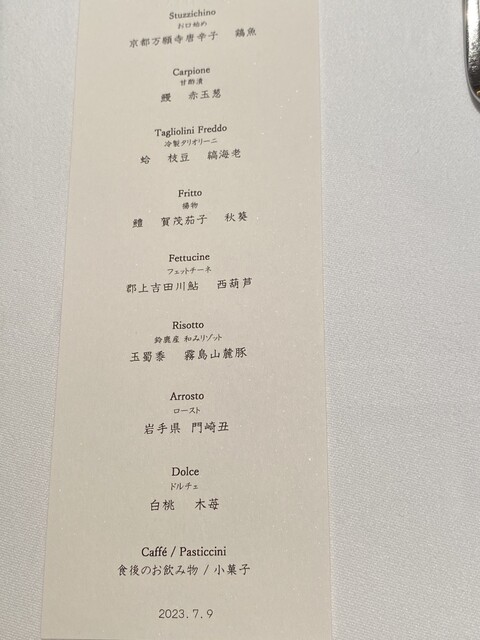 Stuzzichino
お口始め
京都万願寺唐辛子 鶏魚
Carpione
甘酢漬
鰻 赤玉葱
Tagliolini Freddo
冷製タリオリーニ
蛤 枝豆 縞海老
Fritto
揚物
鱧 賀茂茄子 秋葵
Fettucine
フェットチーネ
郡上吉田川鮎 西葫芦
Risotto
鈴鹿産 和みリゾット
玉蜀黍 霧島山麓豚
Arrosto
ロースト
岩手県 門崎丑
Dolce
ドルチェ
白桃 木苺
Caffé / Pasticcini
食後のお飲み物 / 小菓子
2023.7.9